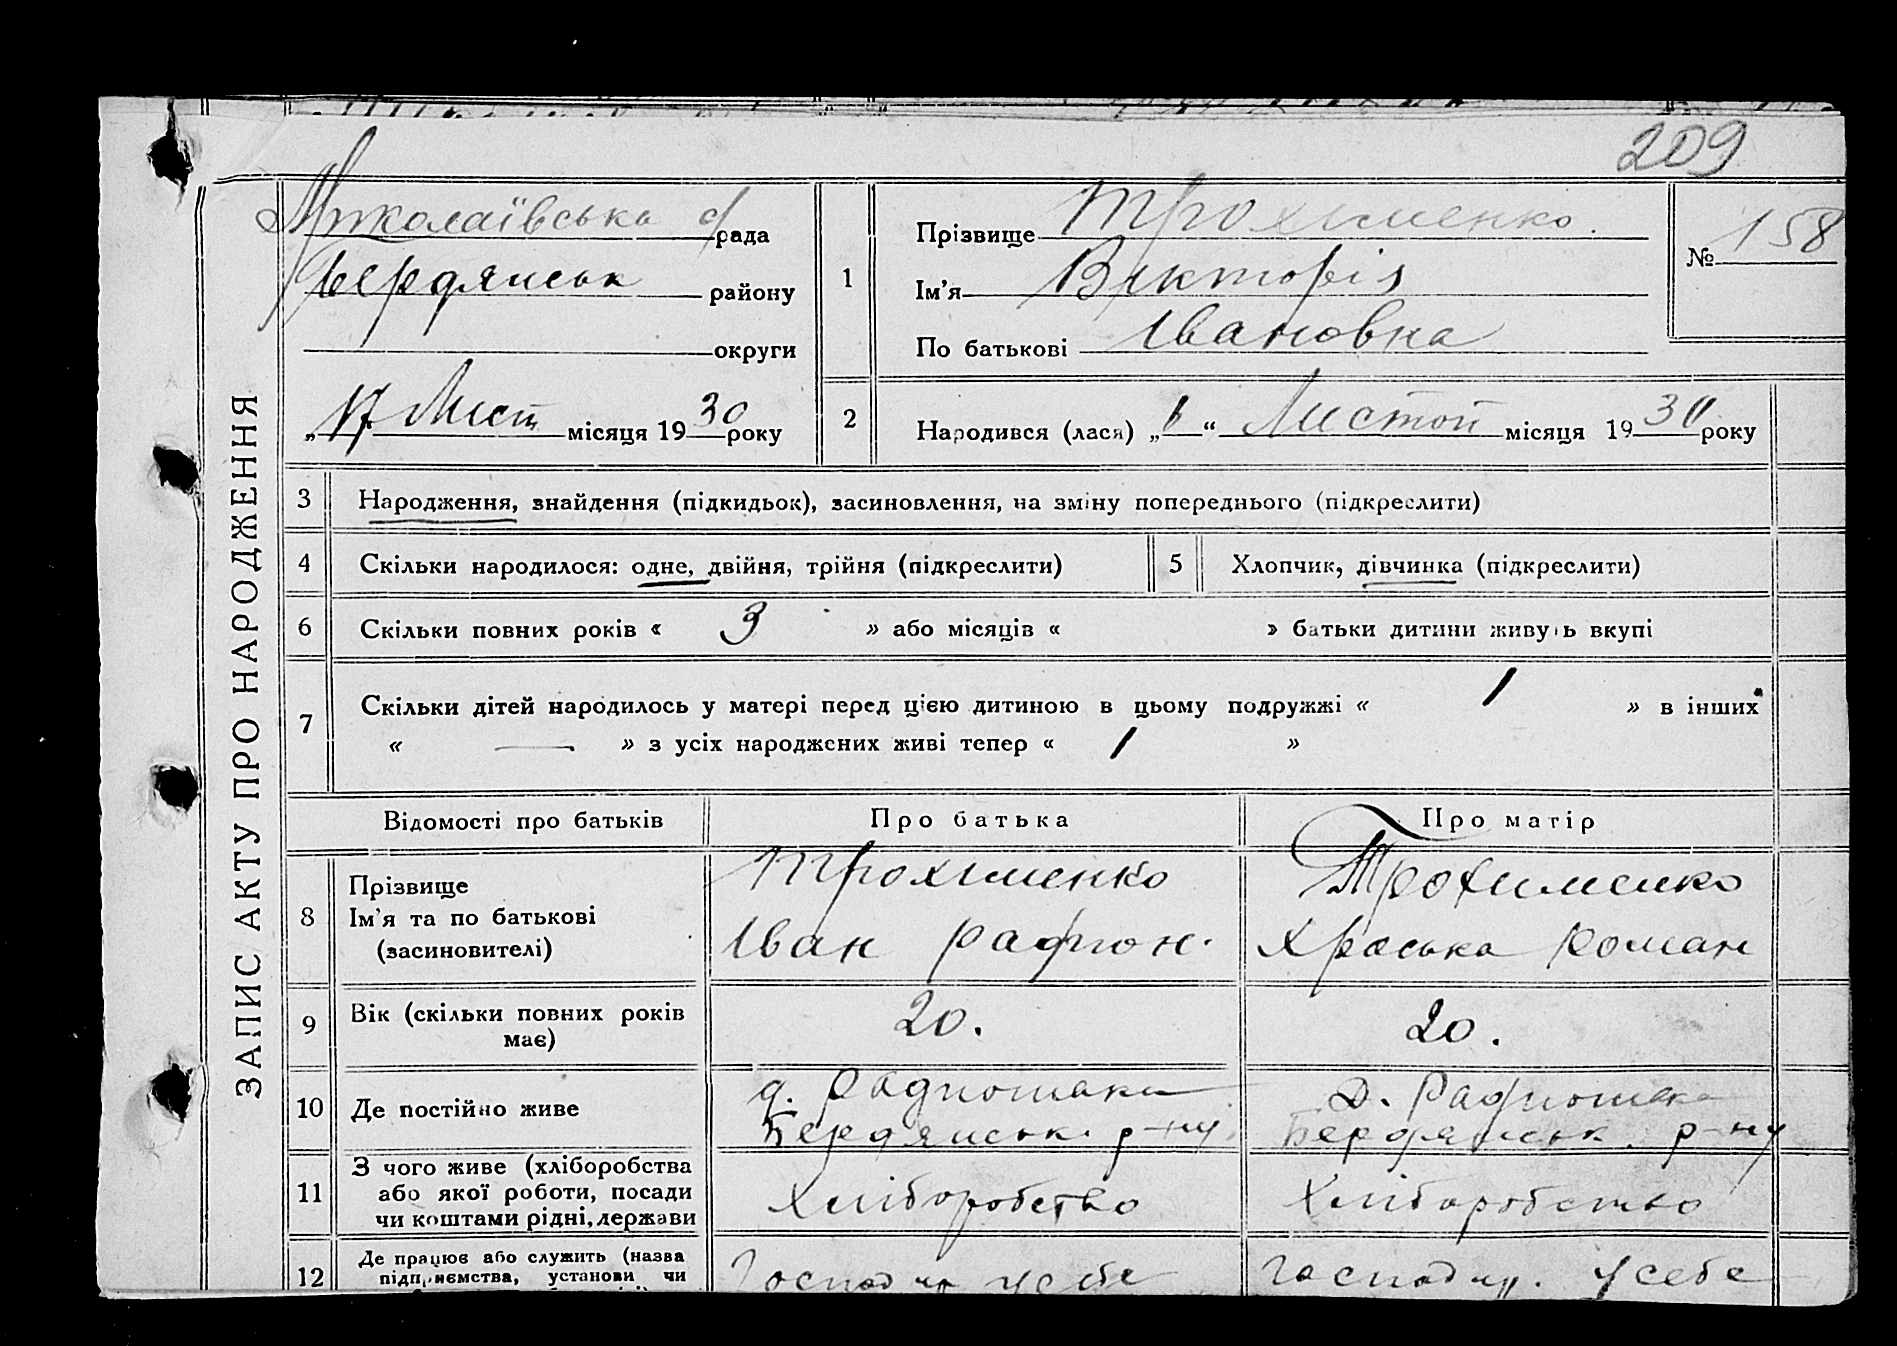 209
ЗАПИС АКТУ ПРО НАРОДЖЕННЯ
Миколаївська с/рада
Бердянськ району
округи
„17 Лист місяця 1930 року
1
Прізвище Трохименко.
Ім'я Вікторія
По батькові Івановна
№ 158
2
Народився (лася) „6“ Листоп місяця 1930 року
3 Народження, знайдення (підкидьок), засиновлення, на зміну попереднього (підкреслити)
4 Скільки народилося: одне, двійня, трійня (підкреслити) 5 Хлопчик, дівчинка (підкреслити)
6 Скільки повних років « 3 » або місяців « » батьки дитини живуть вкупі
7 Скільки дітей народилось у матері перед цією дитиною в цьому подружжі « 1 » в інших
« — » з усіх народжених живі тепер « 1 »
Відомості про батьків Про батька Про матір
8 Прізвище
Ім'я та по батькові
(засиновителі)
Трохименко
Іван
Трохименко
Хроська Роман
9 Вік (скільки повних років
має)
20.
20.
10 Де постійно живе
д.
Бердянськ. р-ну
д.
Бердянськ. р-ну
11 З чого живе (хліборобства
або якої роботи, посади
чи коштами рідні, держави
Хліборобство
Хліборобство
12 Де працює або служить (назва
підприємства, установи чи
Господар у себе
Господар. у себе